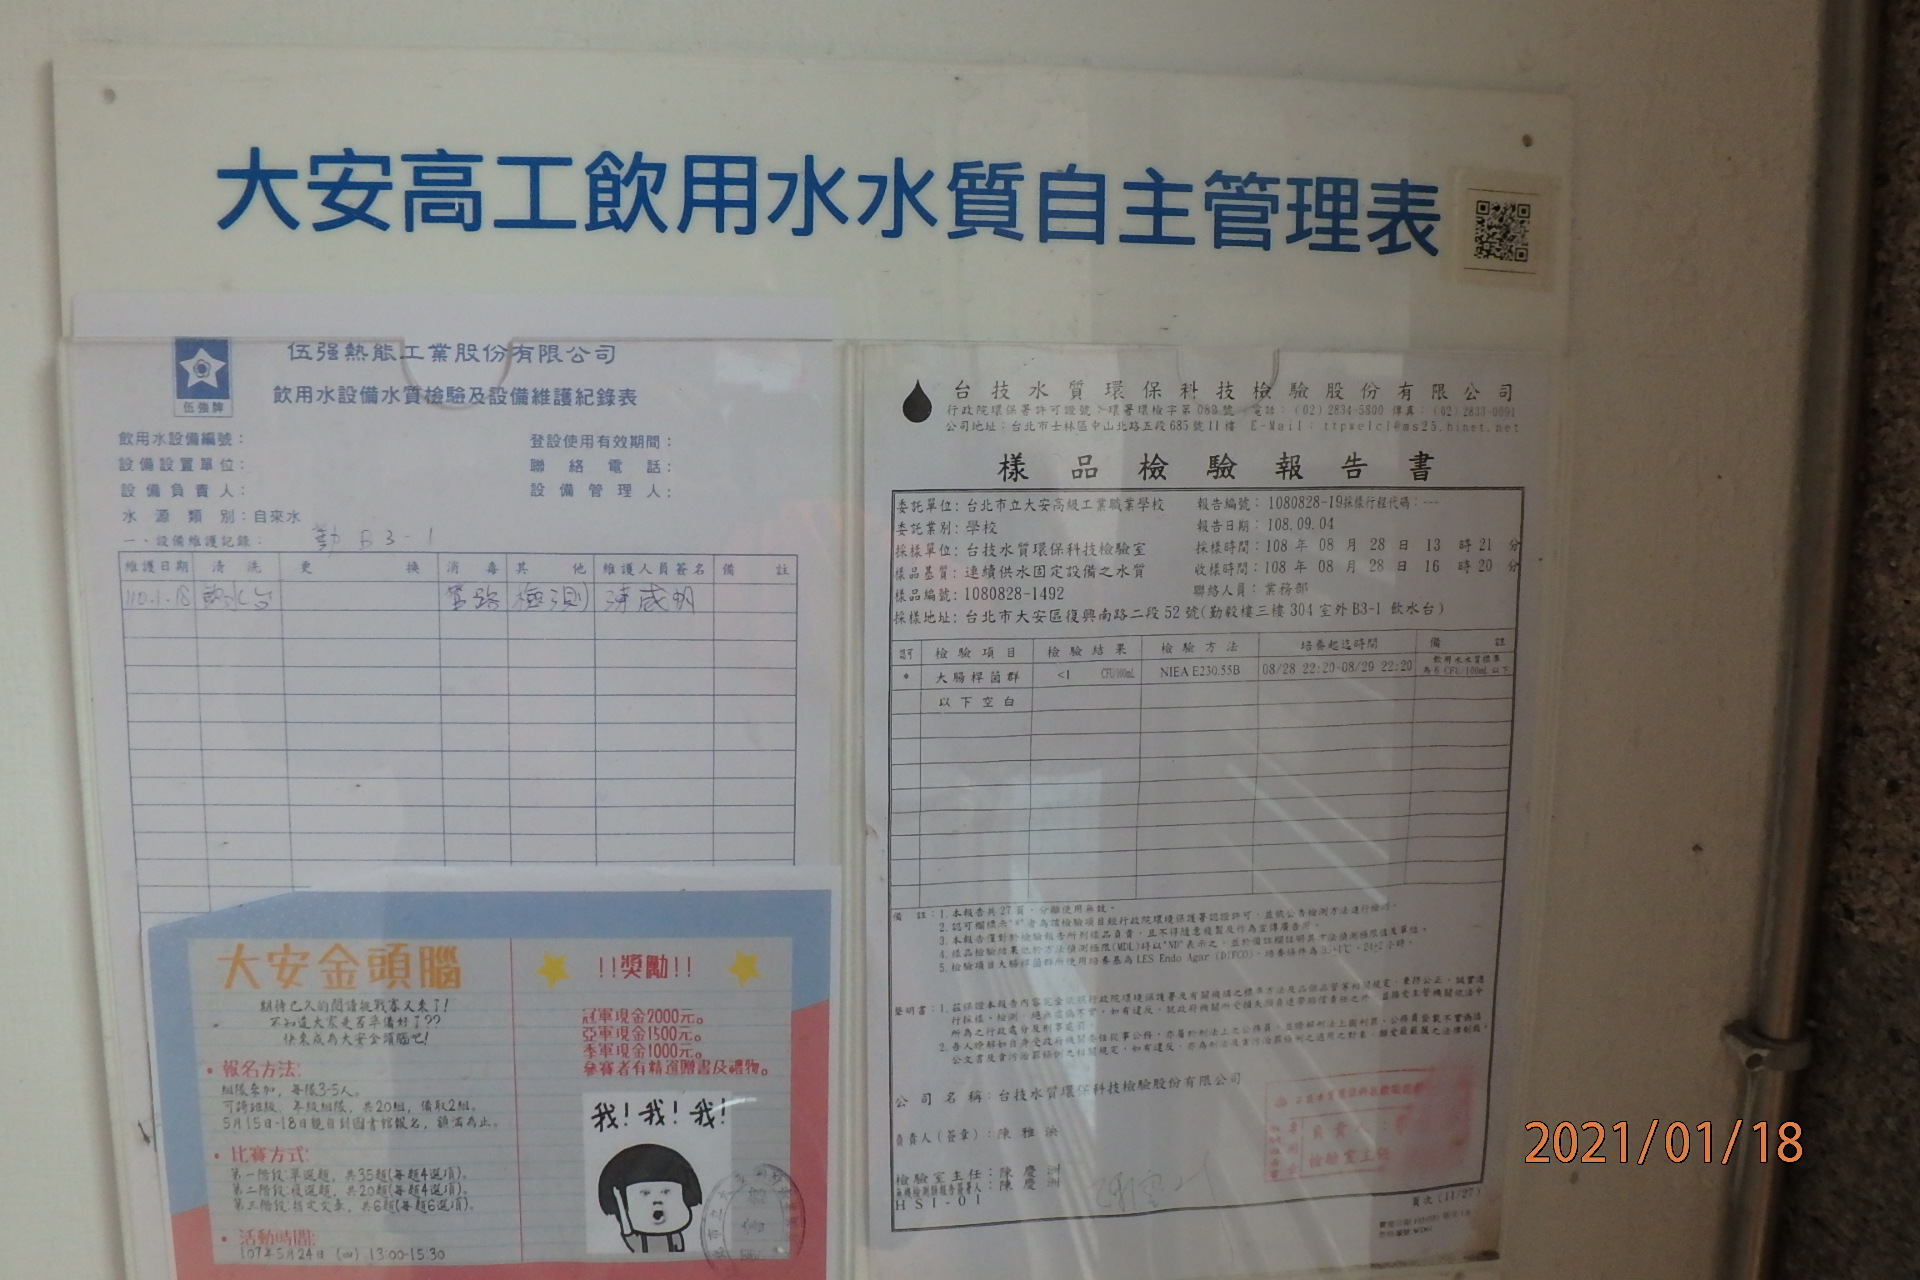 大安高工飲用水水質自主管理表
伍强熱能工業股份有限公司
伍強牌
飲用水設備水質檢驗及設備維護紀錄表
飲用水設備編號：
登設使用有效期間：
設備設置單位：
聯絡電話：
設備負責人：
設備管理人：
水源類別：自來水
一、設備維護記錄：
勤 B3-1
維護日期 清洗 更換 消毒 其他 維護人員簽名 備註
110.1.18 飲水台 管路 檢測
大安金頭腦
期待已久的閱讀挑戰賽又來了!
不知道大家是否準備好了??
快來成為大安金頭腦吧!
• 報名方法:
組隊參加，每隊3-5人。
可跨班級、年級組隊，共20組，備取2組。
5月15日-18日親自到圖書館報名，額滿為止。
• 比賽方式:
第一階段:單選題，共35題(每題4選項)。
第二階段:複選題，共20題(每題4選項)。
第三階段:指定文章，共6題(每題6選項)。
• 活動時間:
107年5月24日 (四) 13:00-15:30
!!獎勵!!
冠軍現金2000元。
亞軍現金1500元。
季軍現金1000元。
參賽者有精選贈書及禮物。
我! 我! 我!
台技水質環保科技檢驗股份有限公司
行政院環保署許可證號：環署環檢字第 089 號 電話：(02) 2834-5800 傳真：(02) 2833-0091
公司地址：台北市士林區中山北路五段 685 號 11 樓 E-Mail：
樣品檢驗報告書
委託單位: 台北市立大安高級工業職業學校 報告編號：1080828-19採樣行程代碼：---
委託業別: 學校 報告日期：108.09.04
採樣單位: 台技水質環保科技檢驗室 採樣時間：108 年 08 月 28 日 13 時 21 分
樣品基質: 連續供水固定設備之水質 收樣時間：108 年 08 月 28 日 16 時 20 分
樣品編號: 1080828-1492 聯絡人員：業務部
採樣地址: 台北市大安區復興南路二段 52 號(勤毅樓三樓 304 室外 B3-1 飲水台)
認可 檢驗項目 檢驗結果 檢驗方法 培養起迄時間 備註
* 大腸桿菌群 <1 CFU/100mL NIEA E230.55B 08/28 22:20-08/29 22:20 飲用水水質標準為6 CFU/100mL 以下
以下空白
備註：1. 本報告共 27 頁，分離使用無效。
2. 認可欄標示"*"者為該檢驗項目經行政院環境保護署認證許可，並依公告檢測方法進行檢測。
3. 本報告僅對於檢驗報告所列樣品負責，且不得隨意複製及作為宣傳廣告用。
4. 樣品檢驗結果低於方法偵測極限(MDL)時以"ND"表示之，並於備註欄註明其方法偵測極限值及單位。
5. 檢驗項目大腸桿菌群所使用培養基為 LES Endo Agar (DIFCO)
聲明書：1.
2.
公司名稱：台技水質環保科技檢驗股份有限公司
負責人(簽章)：陳雅
檢驗室主任：陳慶洲
陳慶洲
HSI-01
頁次 (11/27)
2021/01/18